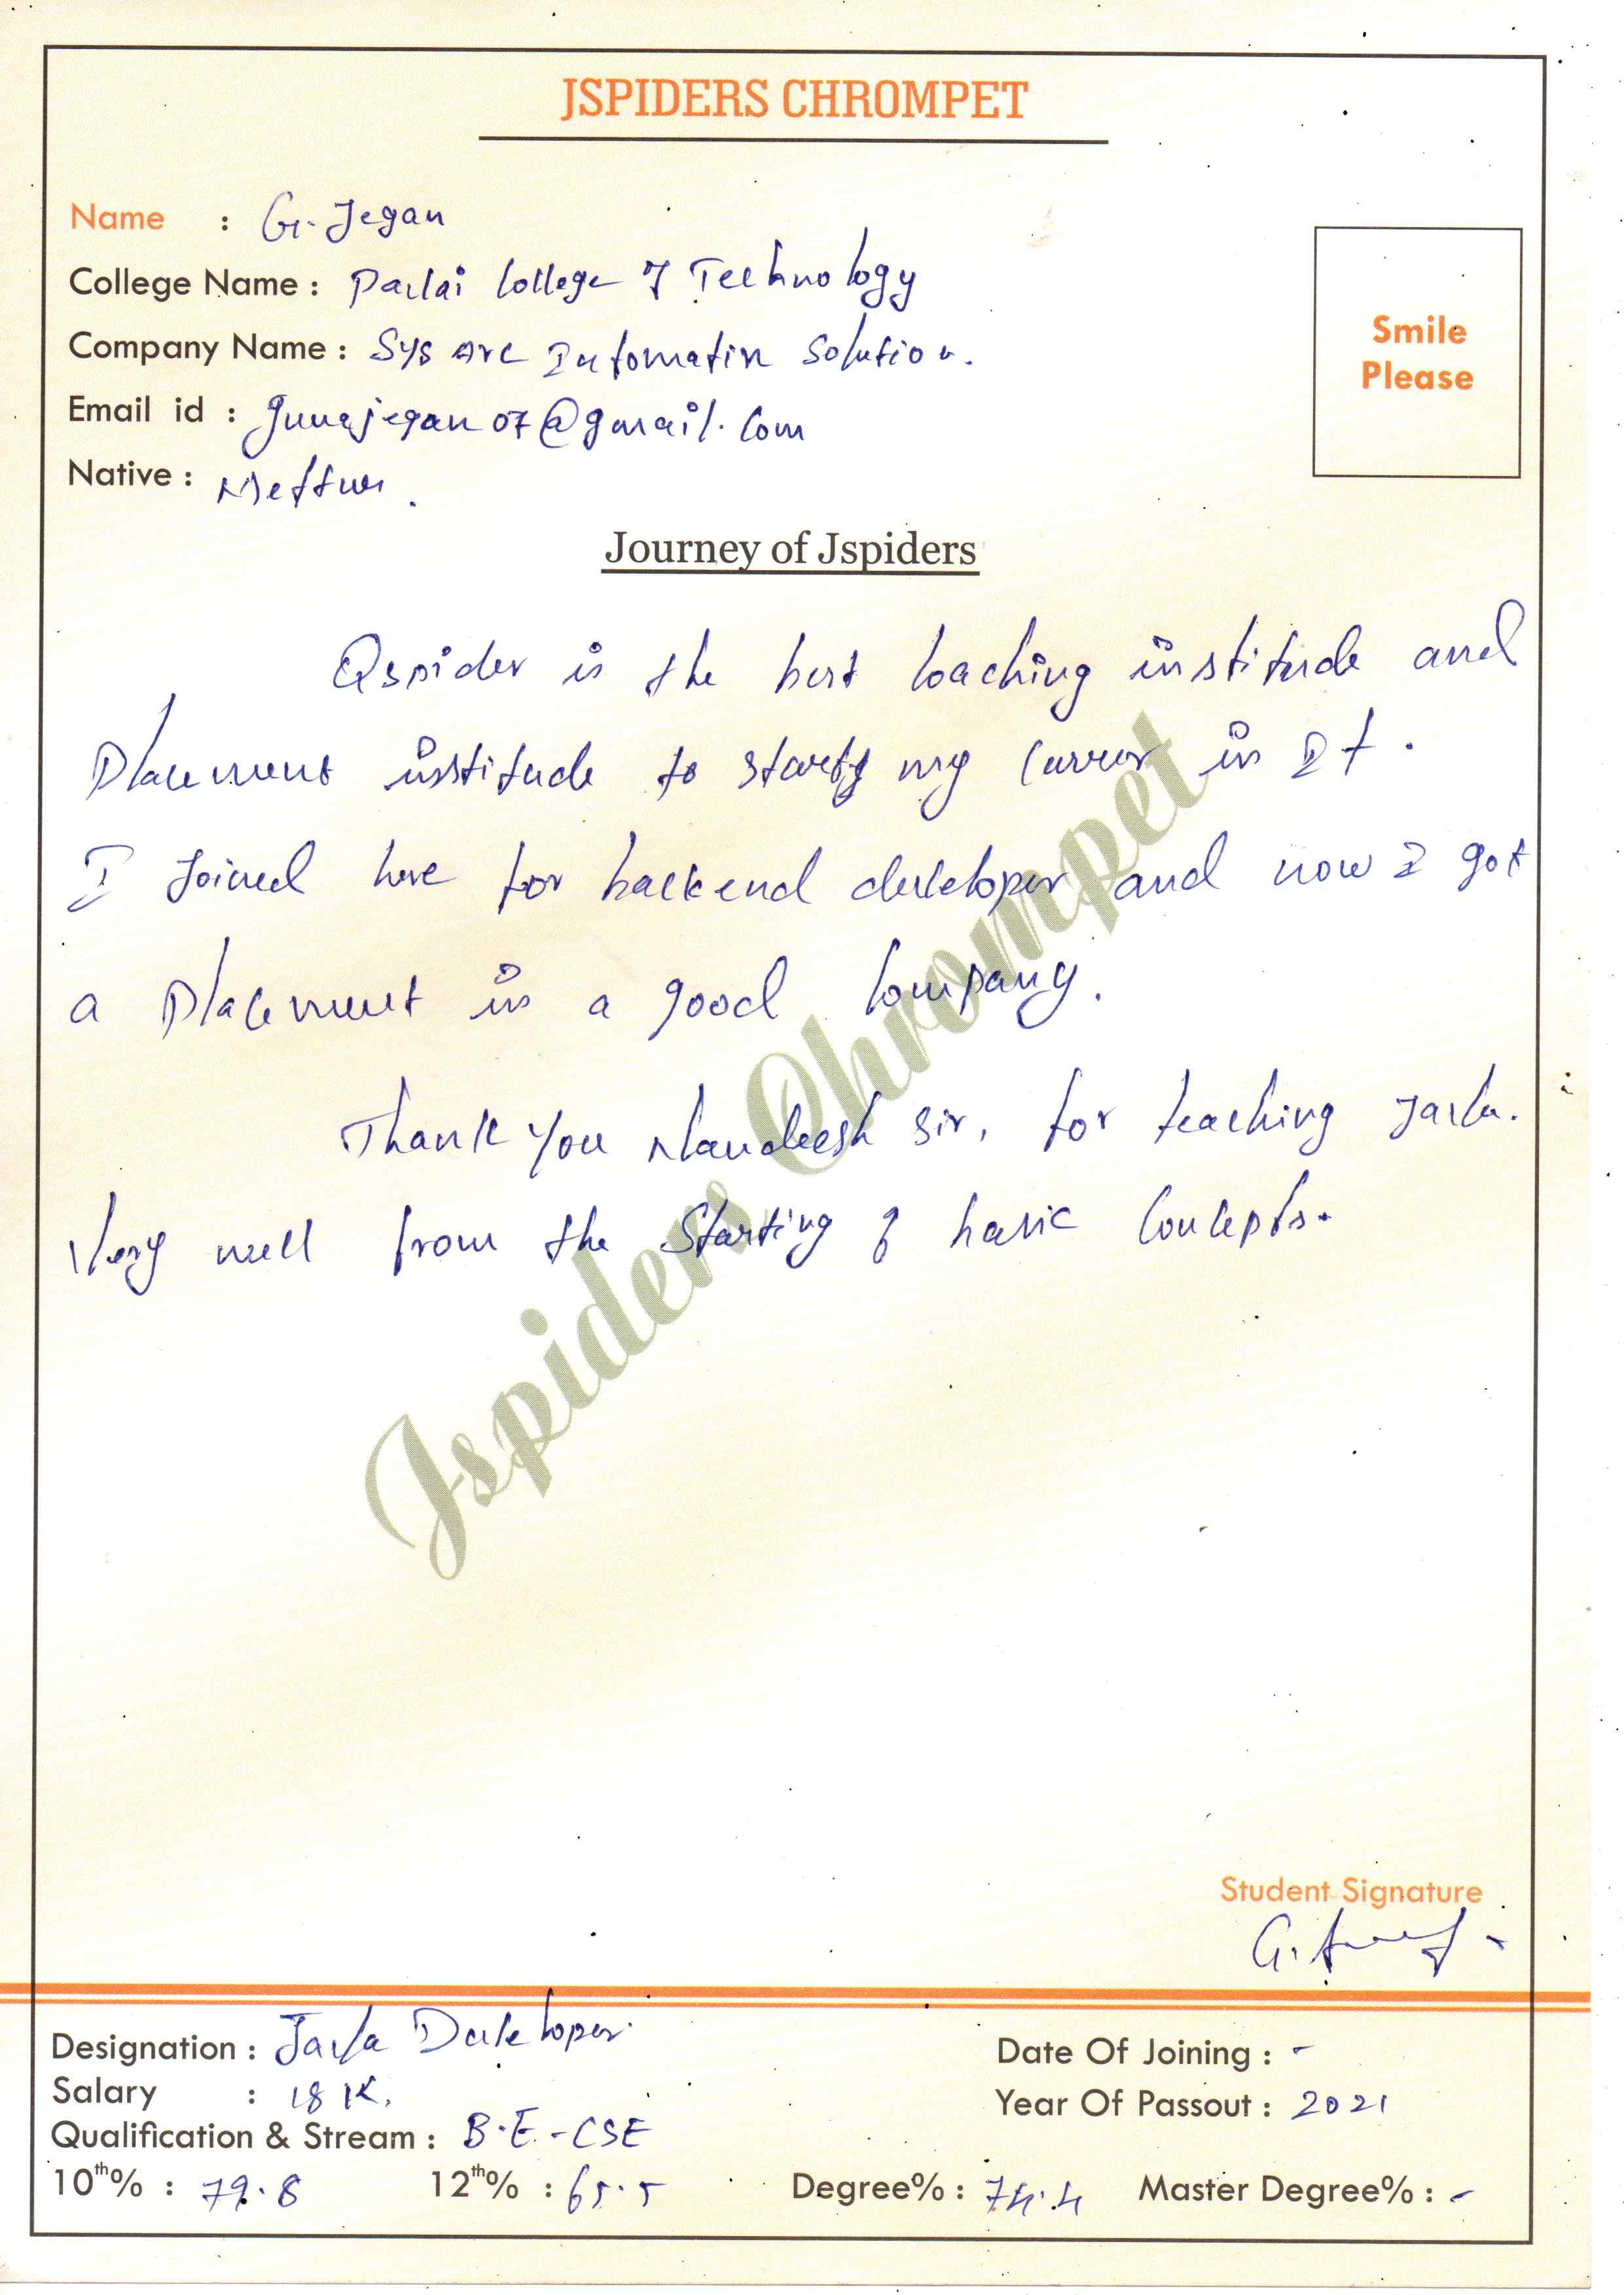 JSPIDERS CHROMPET
Name : G. Jegan
College Name : Paavai College of Technology
Company Name : Sys Arc Infomatix Solution.
Email id : gunajegan07@gmail.com
Native : Mettur.
Smile
Please
Journey of Jspiders
Qspider is the best coaching institude and
Placement institude to start my carrer in It.
I Joined here for backend developer and now I got
a Placement in a good company.
Thank you Nandeesh sir, for teaching Java.
Very well from the Starting of basic Concepts.
Jspiders Chrompet
Student Signature
Designation : Java Developer.
Date Of Joining : -
Salary : 18 K.
Year Of Passout : 2021
Qualification & Stream : B.E.-CSE
10th% : 79.8 12th% : 65.5 Degree% : 74.4 Master Degree% : -